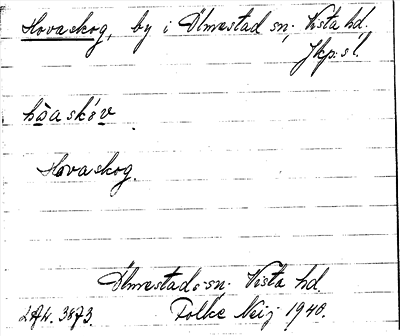 Hovaskog, by i Ölmestad sn, Vista hd.
Jkp. sl.
håaskov
Hovaskog.
Ölmestads sn. Vista hd.
Folke Neij 1940.